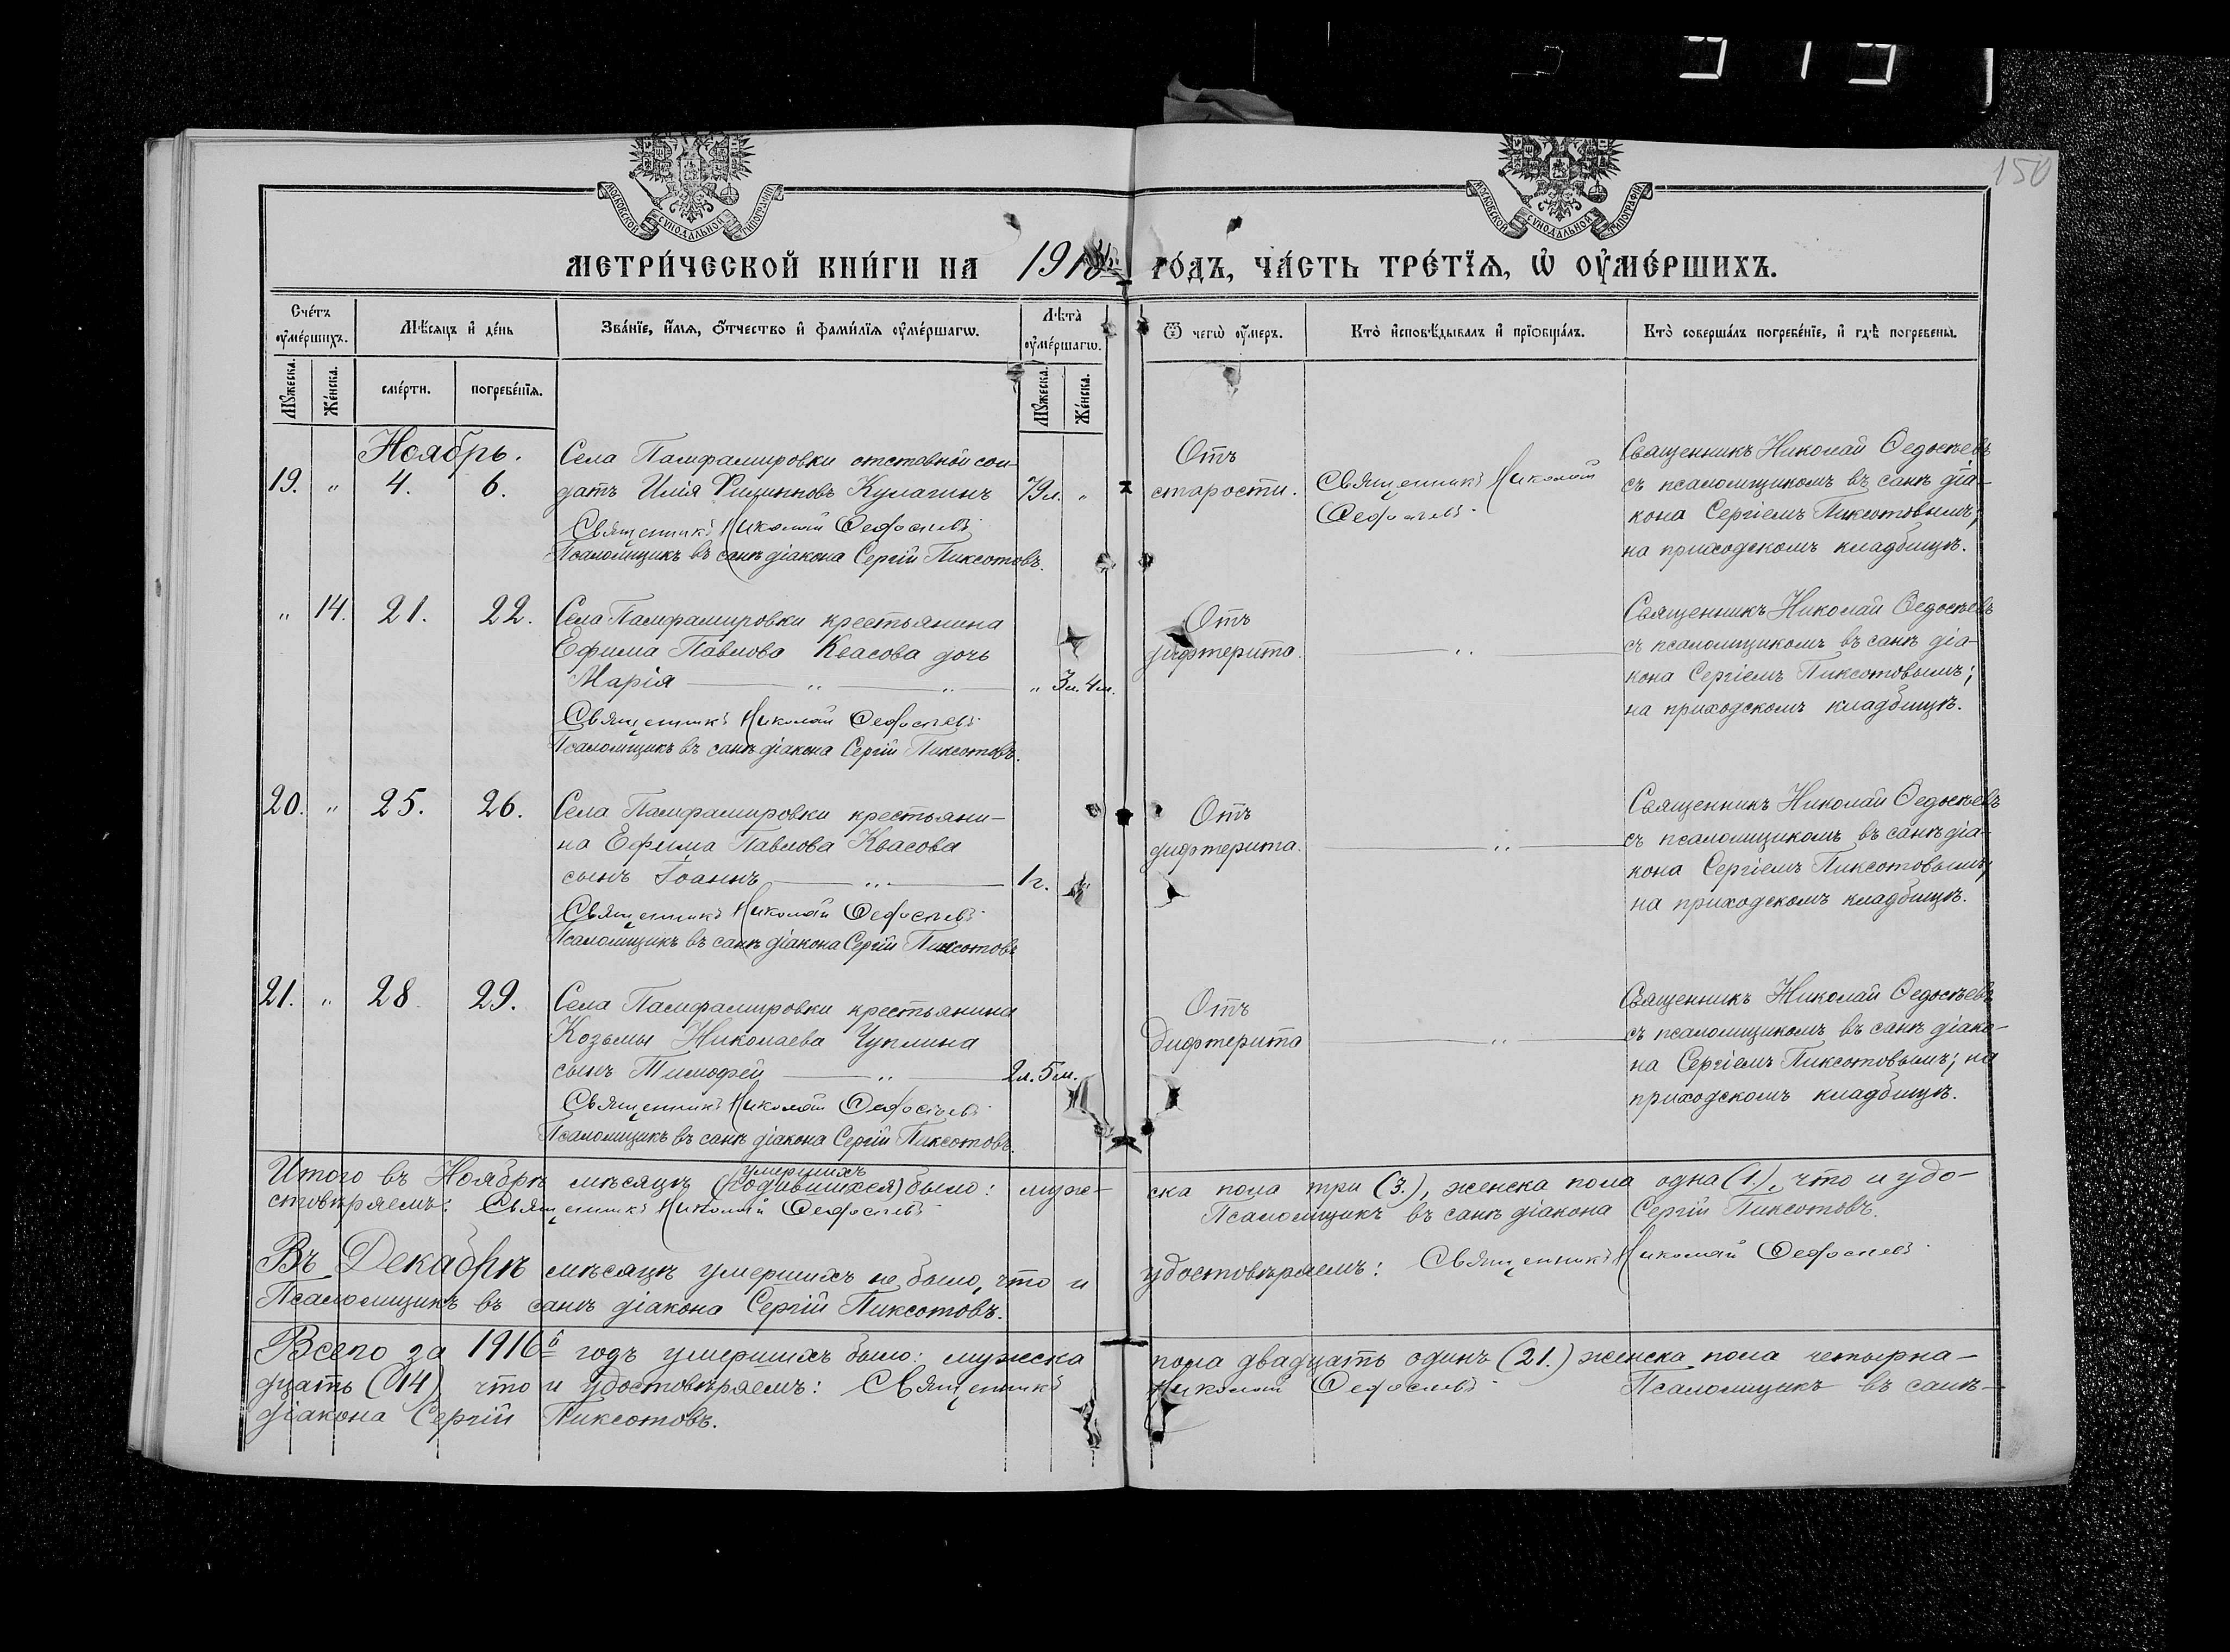 150
МОСКОВСКОЙ СУНОДАЛЬНОЙ ТИПОГРАФІИ
МОСКОВСКОЙ СУНОДАЛЬНОЙ ТИПОГРАФІИ
МЕТРИ́ЧЕСКОЙ КНИ́ГИ НА 1916 ГО́ДЪ, ЧА́СТЬ ТРЕ́ТІѦ, Ѡ ОУ҆МЕ́РШИХЪ.
Сче́тъ оу҆ме́ршихъ.
Мѣ́сяцъ и҆ де́нь
Зва́нїе, и҆́мя, ѻ҆́тчество и҆ фами́лїя оу҆ме́ршагѡ.
Лѣ́та оу҆ме́ршагѡ.
Ѿ чегѡ̀ оу҆́меръ.
Кто̀ и҆сповѣ́дывалъ и҆ прїѻбща́лъ.
Кто̀ соверша́лъ погребе́нїе, и҆ гдѣ̀ погребены̀.
Мꙋ́жеска.
Же́нска.
сме́рти.
погребе́нїя.
Мꙋ́жеска.
Же́нска.
Ноябрь.
19. " 4. 6.
Села Памфамировки отставной сол-
датъ Илія Кулагинъ 79л. "
Священникъ Николай Ѳедосѣевъ
Псаломщикъ въ санѣ діакона Сергій Пиксотовъ.
Отъ
старости.
Священникъ Николай
Ѳедосѣевъ.
Священникъ Николай Ѳедосѣевъ
съ псаломщикомъ въ санѣ діа-
кона Сергіемъ Пиксотовымъ;
на приходскомъ кладбищѣ.
" 14. 21. 22.
Села Памфамировки крестьянина
Ефима Павлова Квасова дочь
Марія " " " 3л. 4м.
Священникъ Николай Ѳедосѣевъ
Псаломщикъ въ санѣ діакона Сергій Пиксотовъ.
Отъ
дифтерита.
"
Священникъ Николай Ѳедосѣевъ
съ псаломщикомъ въ санѣ діа-
кона Сергіемъ Пиксотовымъ;
на приходскомъ кладбищѣ.
20. " 25. 26.
Села Памфамировки крестьяни-
на Ефима Павлова Квасова
сынъ Іоаннъ " 1г. "
Священникъ Николай Ѳедосѣевъ
Псаломщикъ въ санѣ діакона Сергій Пиксотовъ
Отъ
дифтерита.
"
Священникъ Николай Ѳедосѣевъ
съ псаломщикомъ въ санѣ діа-
кона Сергіемъ Пиксотовымъ,
на приходскомъ кладбищѣ.
21. " 28. 29.
Села Памфамировки крестьянина
Козьмы Николаева Чуплина
сынъ Тимофей " 2л. 5м.
Священникъ Николай Ѳедосѣевъ
Псаломщикъ въ санѣ діакона Сергій Пиксотовъ.
Отъ
Дифтерита
"
Священникъ Николай Ѳедосѣевъ
съ псаломщикомъ въ санѣ діако-
на Сергіемъ Пиксотовымъ; на
приходскомъ кладбищѣ.
умершихъ
Итого въ Ноябрѣ мѣсяцѣ (родившихся) было: муже- ска пола три (3.), женска пола одна (1.), что и удо-
стовѣряемъ: Священникъ Николай Ѳедосѣевъ Псаломщикъ въ санѣ діакона Сергій Пиксотовъ.
Въ Декабрѣ мѣсяцѣ умершихъ не было, что и удостовѣряемъ: Священникъ Николай Ѳедосѣевъ
Псаломщикъ въ санѣ діакона Сергій Пиксотовъ.
Всего за 1916й годъ умершихъ было: мужеска пола двадцать одинъ (21.) женска пола четырна-
дцать (14) что и удостовѣряемъ: Священникъ Николай Ѳедосѣевъ Псаломщикъ въ санѣ
діакона Сергій Пиксотовъ.